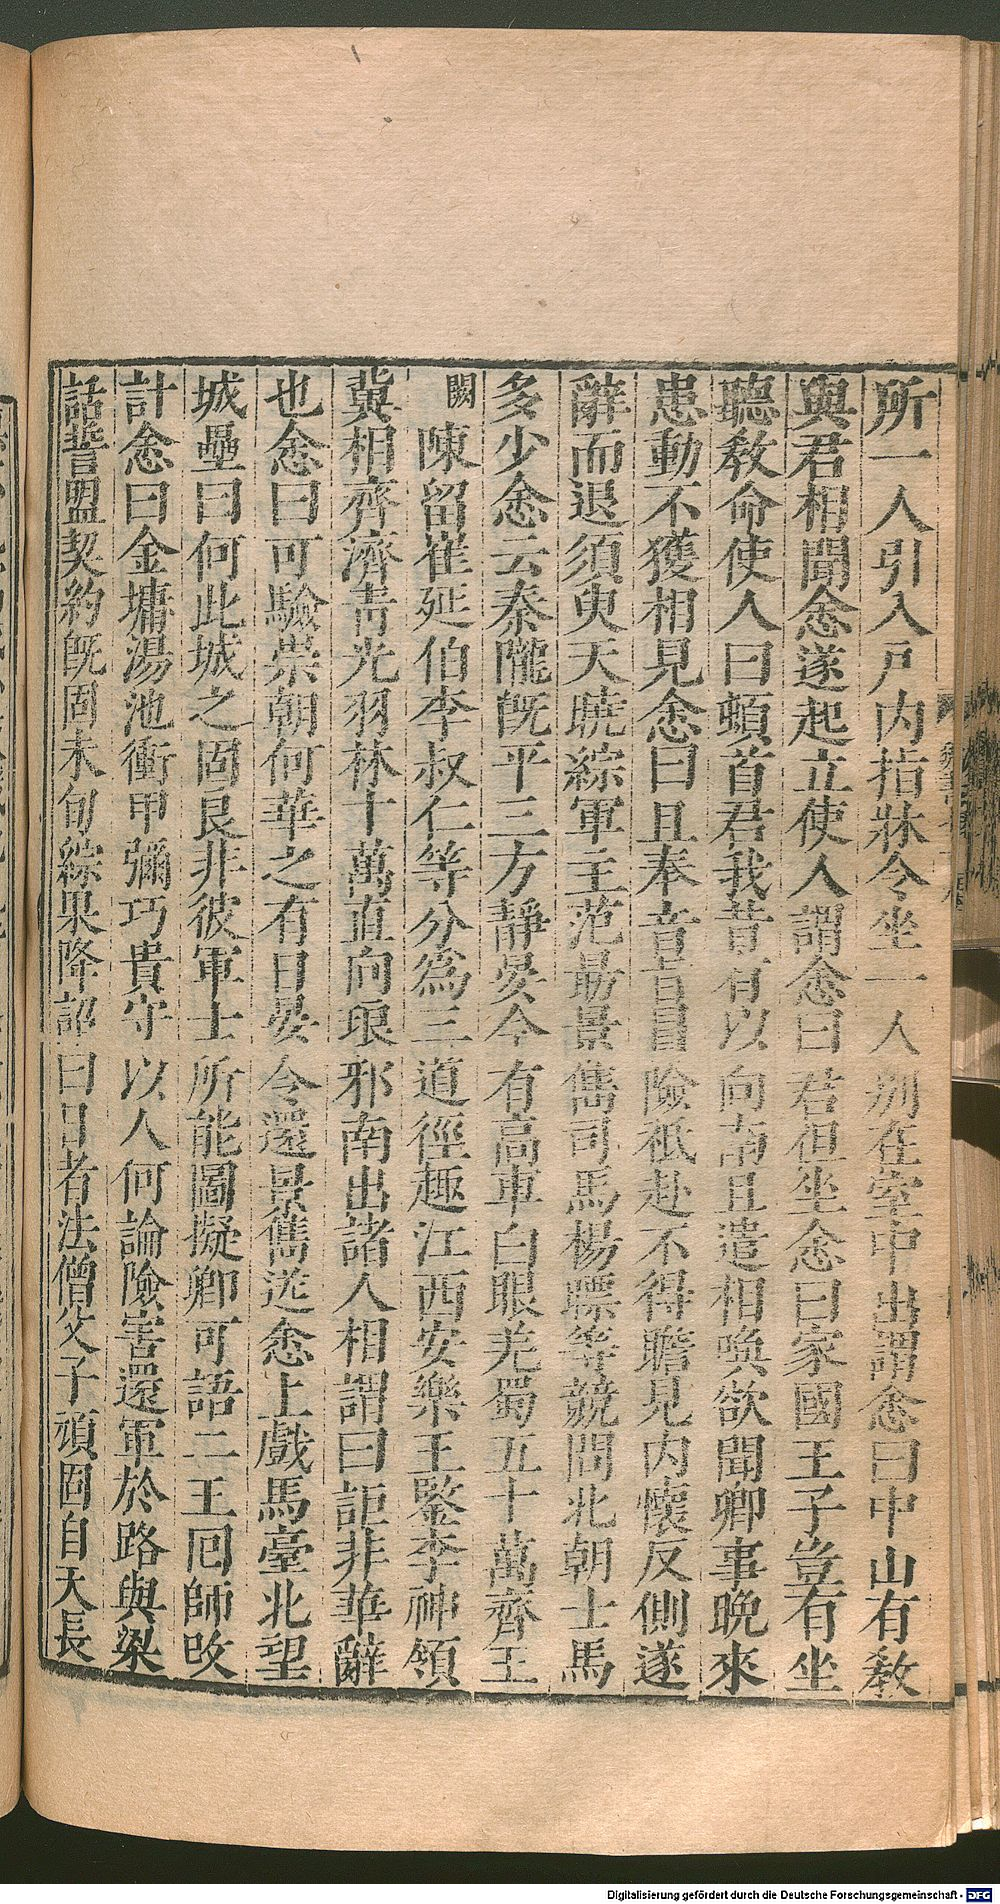 所一人引入戸內指牀令坐一人別在室中出謂悆曰中山有敎
與君相聞悆遂起立使人謂悆曰君但坐悆曰家國王子豈有坐
聽敎命使人曰頓首君我昔有以向南且遣相喚欲聞卿事晚來
患動不獲相見悆曰且奉音旨冒險祗赴不得瞻見內懷反側遂
辭而退須臾天曉綜軍主范勗景雋司馬楊㯹等競問北朝士馬
多少悆云秦隴旣平三方靜晏今有高車白眼羌蜀五十萬齊王
闕陳留崔延伯李叔仁等分爲三道徑趣江西安樂王鑒李神領
冀相齊濟靑光羽林十萬直向琅邪南出諸人相謂曰詎非華辭
也悆曰可驗崇朝何華之有日晏令還景雋送悆上戲馬臺北望
城壘曰何此城之固良非彼軍士所能圖擬卿可語二王囘師改
計悆曰金墉湯池衝甲彌巧貴守以人何論險害還軍於路與梁
話誓盟契約旣固未旬綜果降詔曰日者法僧父子頑固自天長
Digitalisierung gefördert durch die Deutsche Forschungsgemeinschaft - DFG